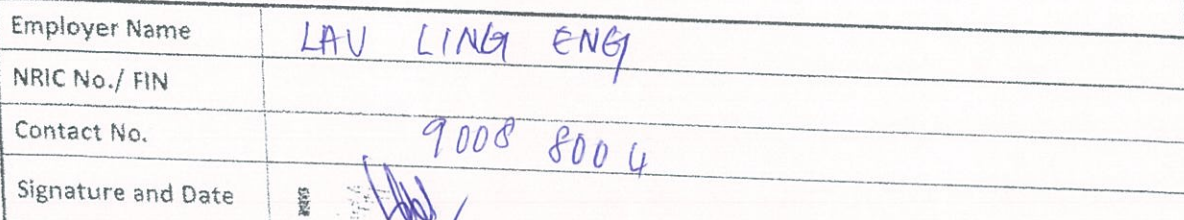 Employer Name LAU LING ENG
NRIC No./ FIN
Contact No. 9008 8004
Signature and Date